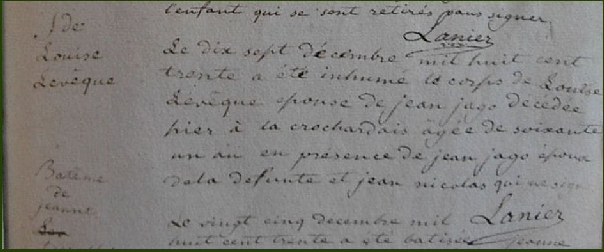 l'enfant qui se sont retirés sans signer
Lanier
S de
Louise
Levêque
Le dix sept décembre mil huit cent
trente a été inhumé le corps de Louise
Levêque epouse de jean jago décédée
hier à la crochardais âgée de soixante
un an en présence de jean jago époux
dela defunte et jean nicolas qui ne sign
Lanier
Batême
de
jeanne
Le vingt cinq decembre mil
huit cent trente a été batisée jeanne